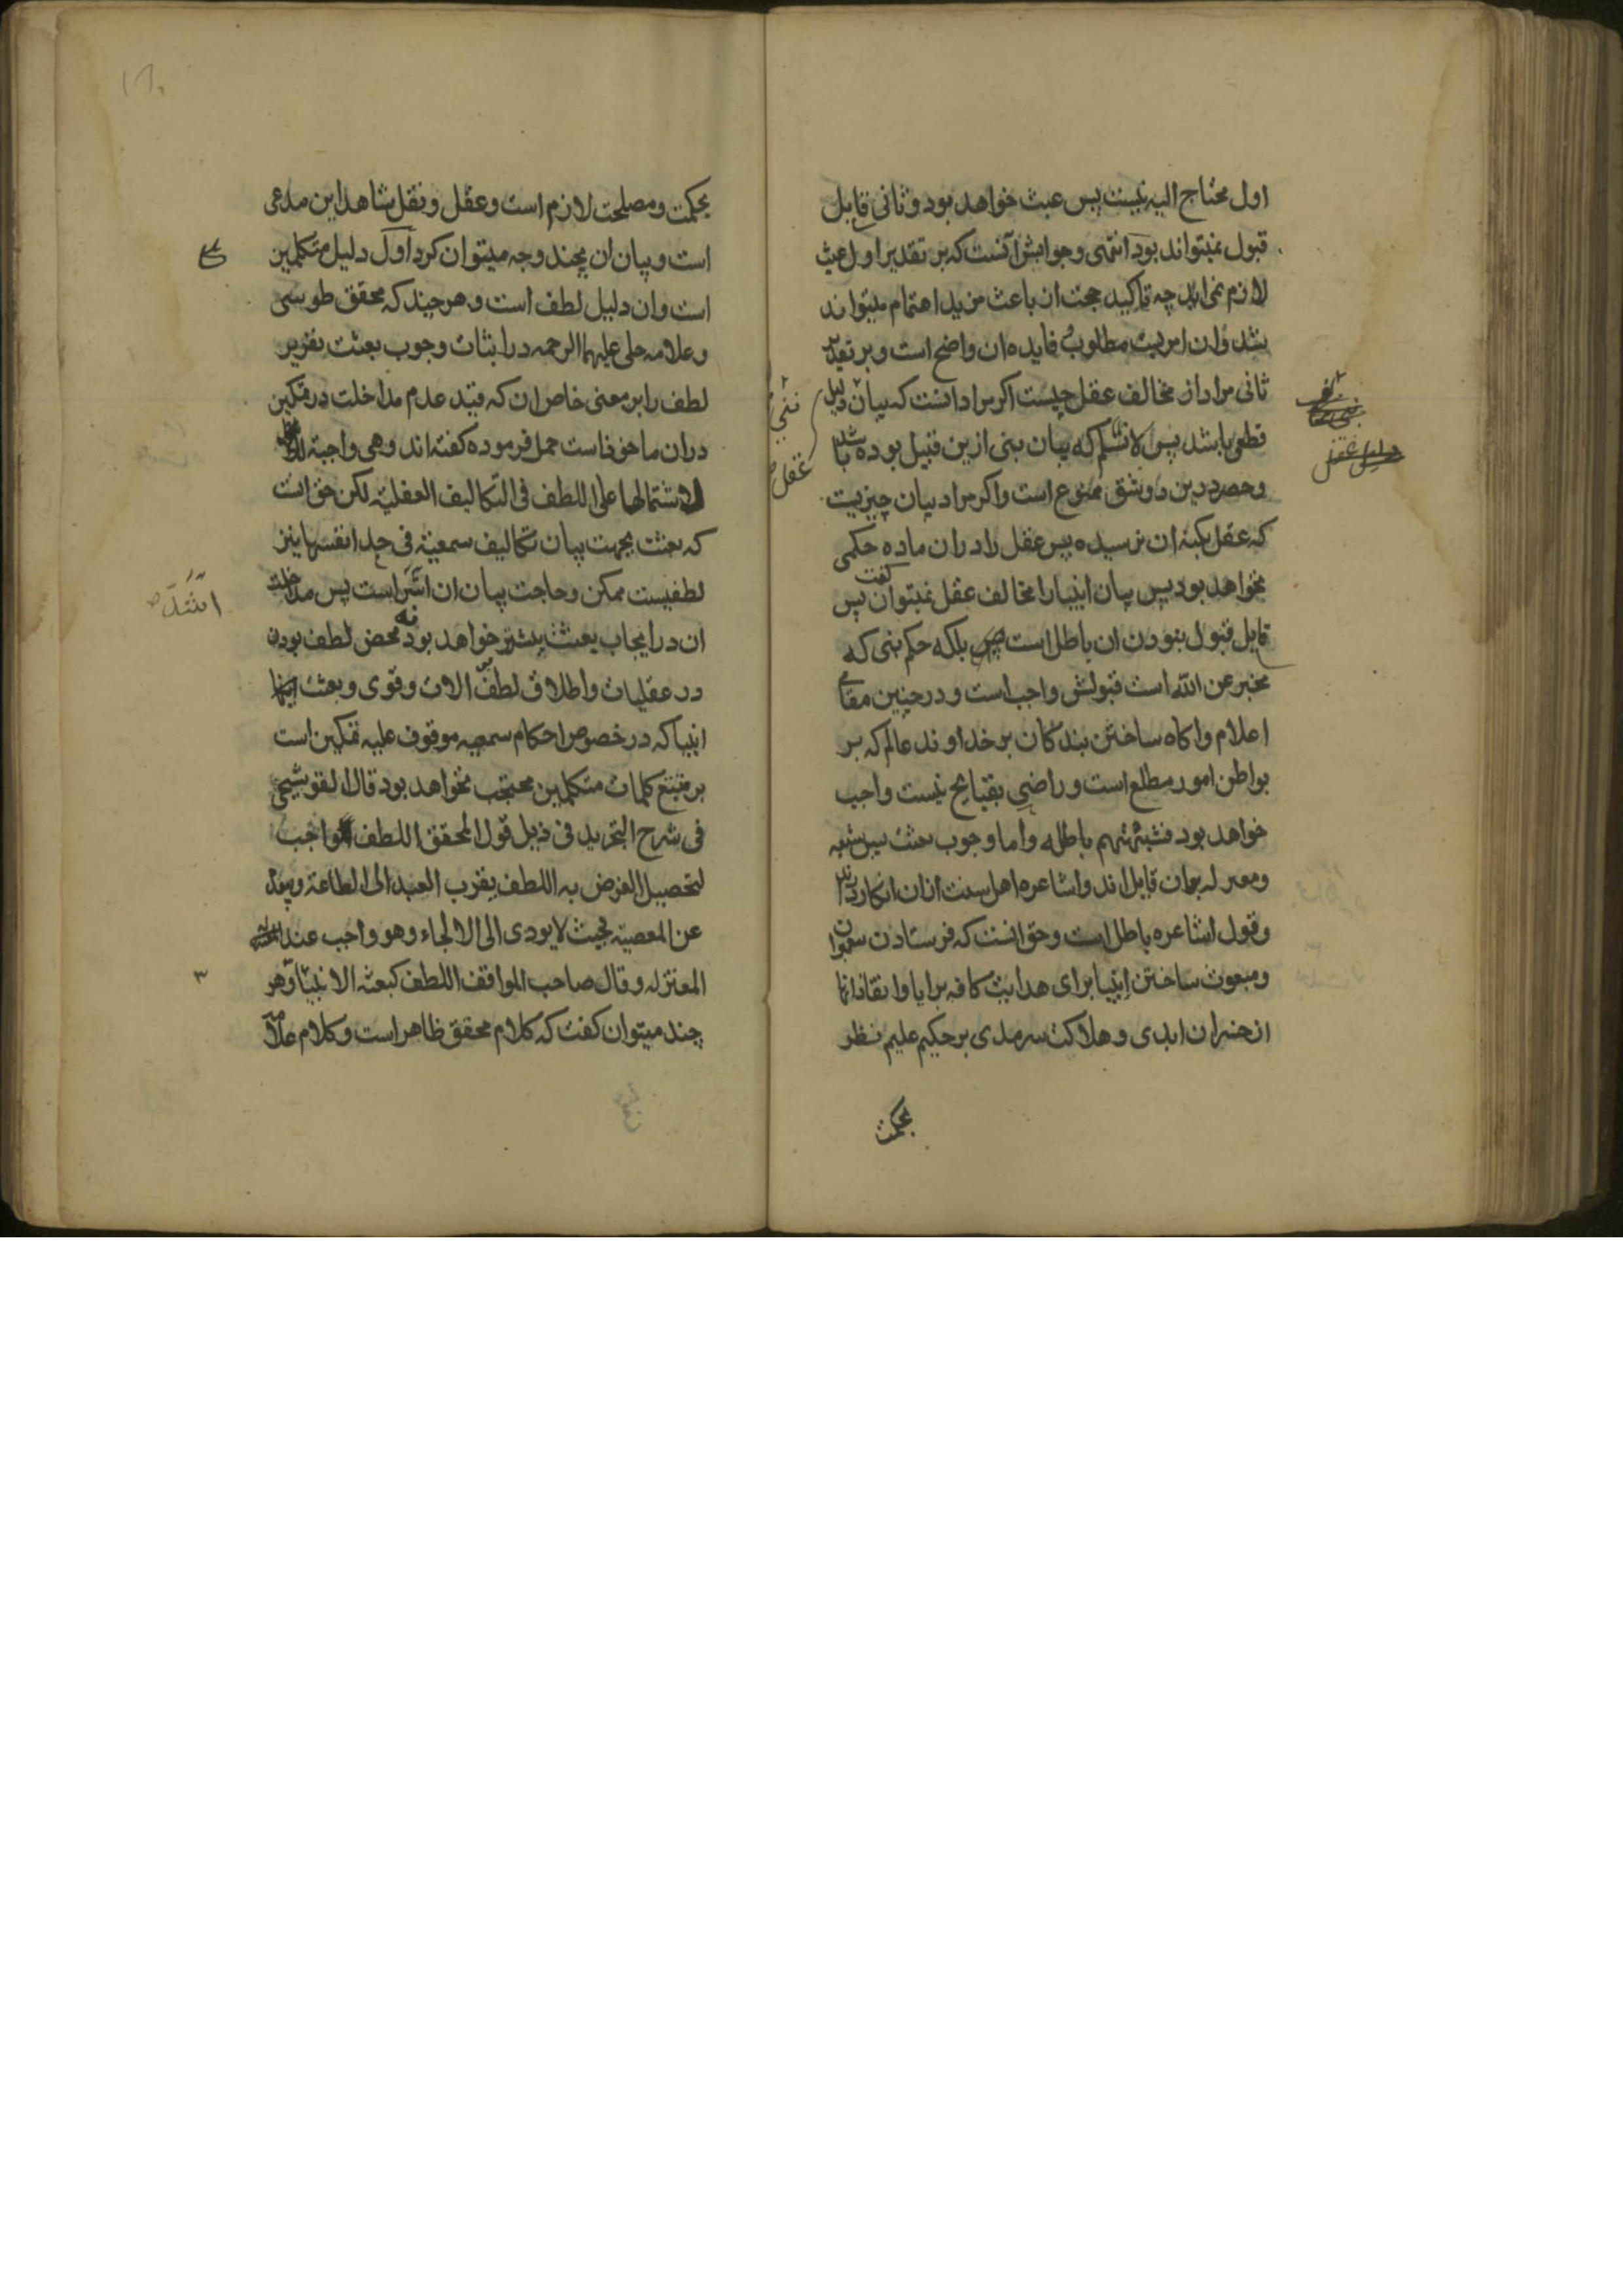 اول محتاج الیه نیست پس عبث خواهد بود و ثانی قابل
قبول نمیتواند بود انتهی وجوابش آنست که بر تقدیر اول عبث
لازم نمی‌آید چه تاکید حجت ان باعث مزید اهتمام میتواند
شد و ان امریست مطلوب فایده ان واضح است و بر تقدیر
ثانی مراد از مخالف عقل چیست اکر مراد انست که بیان دلیل
قطعی باشد پس لانسلم که بیان نبی ازین قبیل بوده باشد
وحصر درین دو شق ممنوع است واکر مراد بیان چیزیست
که عقل بکنه ان نرسیده پس عقل را در ان ماده حکمی
نخواهد بود پس بیان انبیا را مخالف عقل نمیتوان کفت پس
قابل قبول نبودن ان باطل است بلکه حکم نبی که
مخبر عن الله است قبولش واجب است و در چنین مقامی
اعلام واکاه ساختن بندکان بر خداوند عالم که بر
بواطن امور مطلع است و راضی بقبایح نیست واجب
خواهد بود فشبهتهم باطله واما وجوب بعثت پس شیعه
ومعتزله بران قایل اند واشاعره اهل سنت ازان انکار دارند
وقول اشاعره باطل است وحق انست که فرستادن
ومبعوث ساختن انبیا برای هدایت کافه برایا وانقاذ انها
از خسران ابدی و هلاکت سرمدی بر حکیم علیم نظر
بحکمت
نفی
عقل
بحکمت ومصلحت لازم است وعقل ونقل شاهد این مدعی
است وبیان ان بچند وجه میتوان کرد اول دلیل متکلمین
است وان دلیل لطف است و هر چند که محقق طوسی
وعلامه حلی علیهما الرحمه در اثبات وجوب بعثت تقریر
لطف را بر معنی خاص ان که قید عدم مداخلت در تمکین
دران ماخوذ است حمل فرموده کفته اند وهی واجبة
لاشتمالها علی اللطف فی التکالیف العقلیة لکن حق انست
که بعثت بجهت بیان تکالیف سمعیة فی حد انفسها نیز
لطفیست ممکن وحاجت بیان ان اشد است پس مداخلت
ان در ایجاب بعثت بیشتر خواهد بود نه محض لطف بودن
در عقلیات واطلاق لطف بر الات وقوی وبعثت
انبیا که در خصوص احکام سمعیه موقوف علیه تمکین است
بر متتبع کلمات متکلمین محتجب نخواهد بود قال القوشچی
فی شرح التجرید فی ذیل قول المحقق اللطف واجب
لتحصیل الغرض به اللطف یقرب العبد الی الطاعة ویبعد
عن المعصیة بحیث لا یودی الی الالجاء وهو واجب عند
المعتزله وقال صاحب المواقف اللطف کبعثة الانبیا وهر
چند میتوان کفت که کلام محقق ظاهر است وکلام علامه
اشد